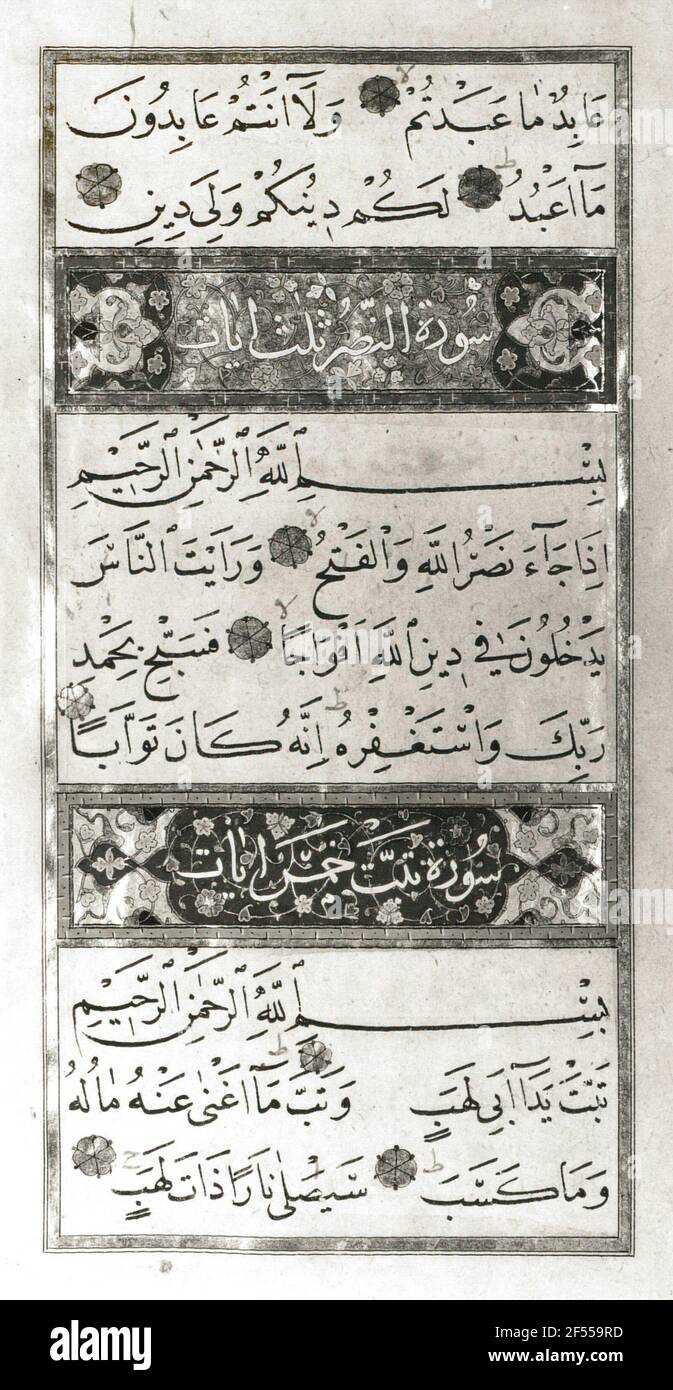 عَابِدٌ مٰا عَبَدْتُمْ وَلَآ اَنْتُمْ عَابِدُونَ
مَآ اَعْبُدُ لَكُمْ دِينُكُمْ وَلِىَ دِينِ
سُورَةُ النَّصْرِ ثَلٰثُ اٰيَات
بِسْمِ اللَّهِ الرَّحْمٰنِ الرَّحِيمِ
اِذَا جَآءَ نَصْرُ اللَّهِ وَالْفَتْحُ وَرَاَيْتَ النَّاسَ
يَدْخُلُونَ فِى دِينِ اللَّهِ اَفْوَاجًا فَسَبِّحْ بِحَمْدِ
رَبِّكَ وَاسْتَغْفِرْهُ اِنَّهُ كَانَ تَوَّابًا
سُورَةُ تَبَّتْ خَمْسُ اٰيَات
بِسْمِ اللَّهِ الرَّحْمٰنِ الرَّحِيمِ
تَبَّتْ يَدَآ اَبِى لَهَبٍ وَتَبَّ مَآ اَغْنٰى عَنْهُ مٰالُهُ
وَمَا كَسَبَ سَيَصْلٰى نَارًا ذَاتَ لَهَبٍ
alamy
Image ID: 2F559RD
www.alamy.com